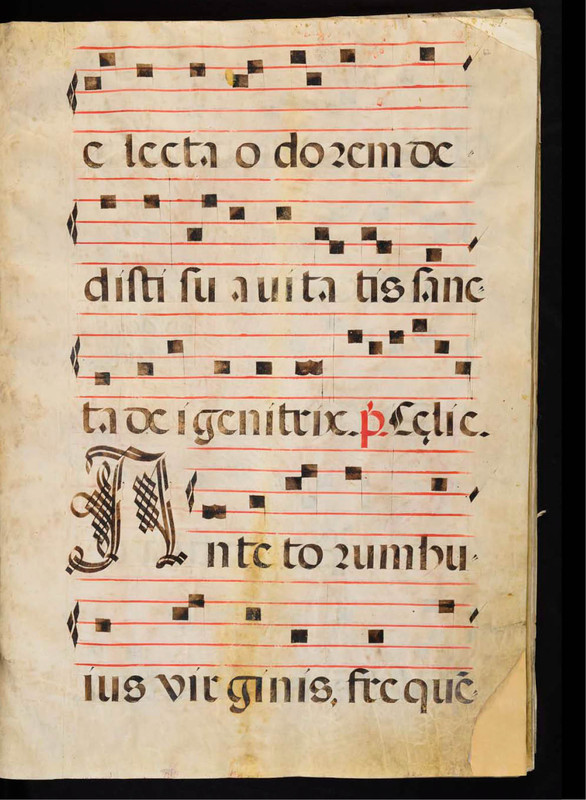 e lecta o dorem de
disti su a ui ta tis sanc
ta de i genitrix. p̄. Cęlic.
A nte to rum hu
ius vir ginis, fre quē